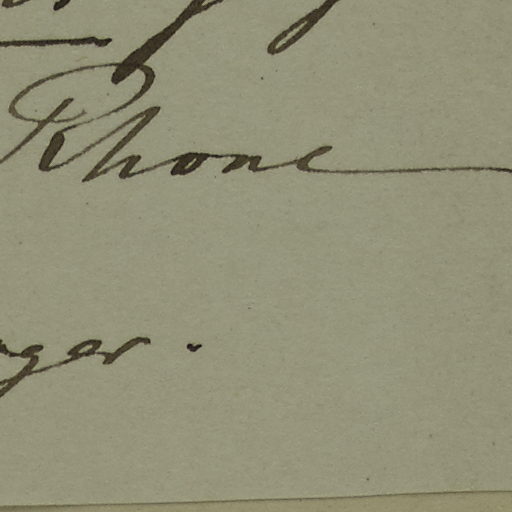 Rhone
ger.